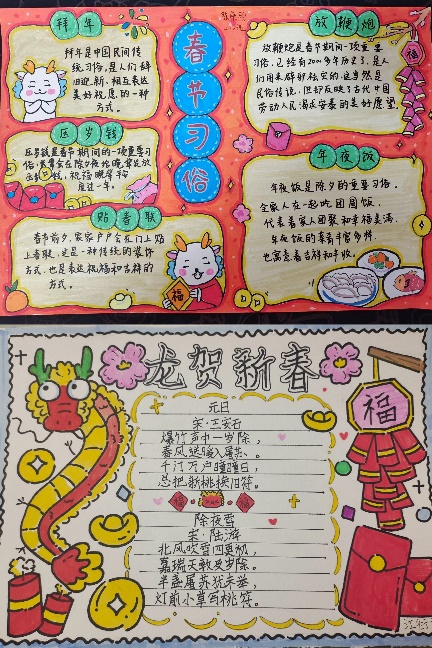 拜年
拜年是中国民间传
统习俗,是人们辞
旧迎新、相互表达
美好祝愿的一种
方式。
压岁钱
俗,长辈会在除夕夜给晚辈发放
压岁钱,祝福晚辈平
度过一年。
贴春联
春节前夕,家家户户会在门上贴
上春联,这是一种传统的装饰
方式,也是表达祝福和吉祥的
方式。
福
春节习俗
放鞭炮
放鞭炮是春节期间一项重要
习俗,已经有2000多年历史了,是人
民俗传说,但却反映了古代中国
劳动人民渴求安泰的美好愿望
福
年夜饭
年夜饭是除夕的重要习俗,
全家人在一起吃团圆饭,
代表着家人团聚和幸福美满,
年夜饭的菜肴丰富多样,
也寓意着吉祥和丰收。
龙贺新春
元日
宋·王安石
爆竹声中一岁除,
春风送暖入屠苏。
千门万户曈曈日,
总把新桃换旧符。
福
福
除夜雪
宋·陆游
北风吹雪四更初,
嘉瑞天教及岁除。
半盏屠苏犹未举,
灯前小草写桃符。
福